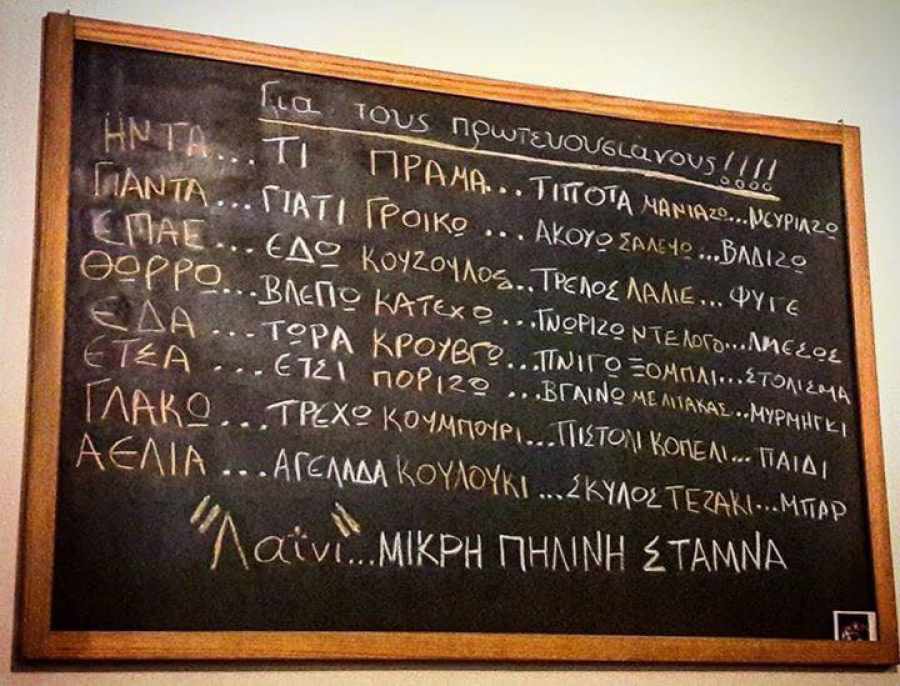 Για τους πρωτευουσιάνους!!!!
ΗΝΤΑ... ΤΙ ΠΡΑΜΑ... ΤΙΠΟΤΑ ΜΑΝΙΑΖΩ... ΝΕΥΡΙΑΖΩ
ΓΙΑΝΤΑ... ΓΙΑΤΙ ΓΡΟΙΚΩ... ΑΚΟΥΩ ΣΑΛΕΥΩ... ΒΑΔΙΖΩ
ΕΠΑΕ... ΕΔΩ ΚΟΥΖΟΥΛΟΣ... ΤΡΕΛΟΣ ΛΑΛΙΕ... ΦΥΓΕ
ΘΩΡΡΩ... ΒΛΕΠΩ ΚΑΤΕΧΩ... ΓΝΩΡΙΖΩ ΝΤΕΛΟΓΟ... ΑΜΕΣΩΣ
ΕΔΑ... ΤΩΡΑ ΚΡΟΥΒΓΩ... ΠΝΙΓΩ ΞΟΜΠΛΙ... ΣΤΟΛΙΣΜΑ
ΕΤΣΑ... ΕΤΣΙ ΠΟΡΙΖΩ... ΒΓΑΙΝΩ ΜΕΛΙΤΑΚΑΣ... ΜΥΡΜΗΓΚΙ
ΓΛΑΚΩ... ΤΡΕΧΩ ΚΟΥΜΠΟΥΡΙ... ΠΙΣΤΟΛΙ ΚΟΠΕΛΙ... ΠΑΙΔΙ
ΑΕΛΙΑ... ΑΓΕΛΑΔΑ ΚΟΥΛΟΥΚΙ... ΣΚΥΛΟΣ ΤΕΖΑΚΙ... ΜΠΑΡ
"Λαΐνι"... ΜΙΚΡΗ ΠΗΛΙΝΗ ΣΤΑΜΝΑ